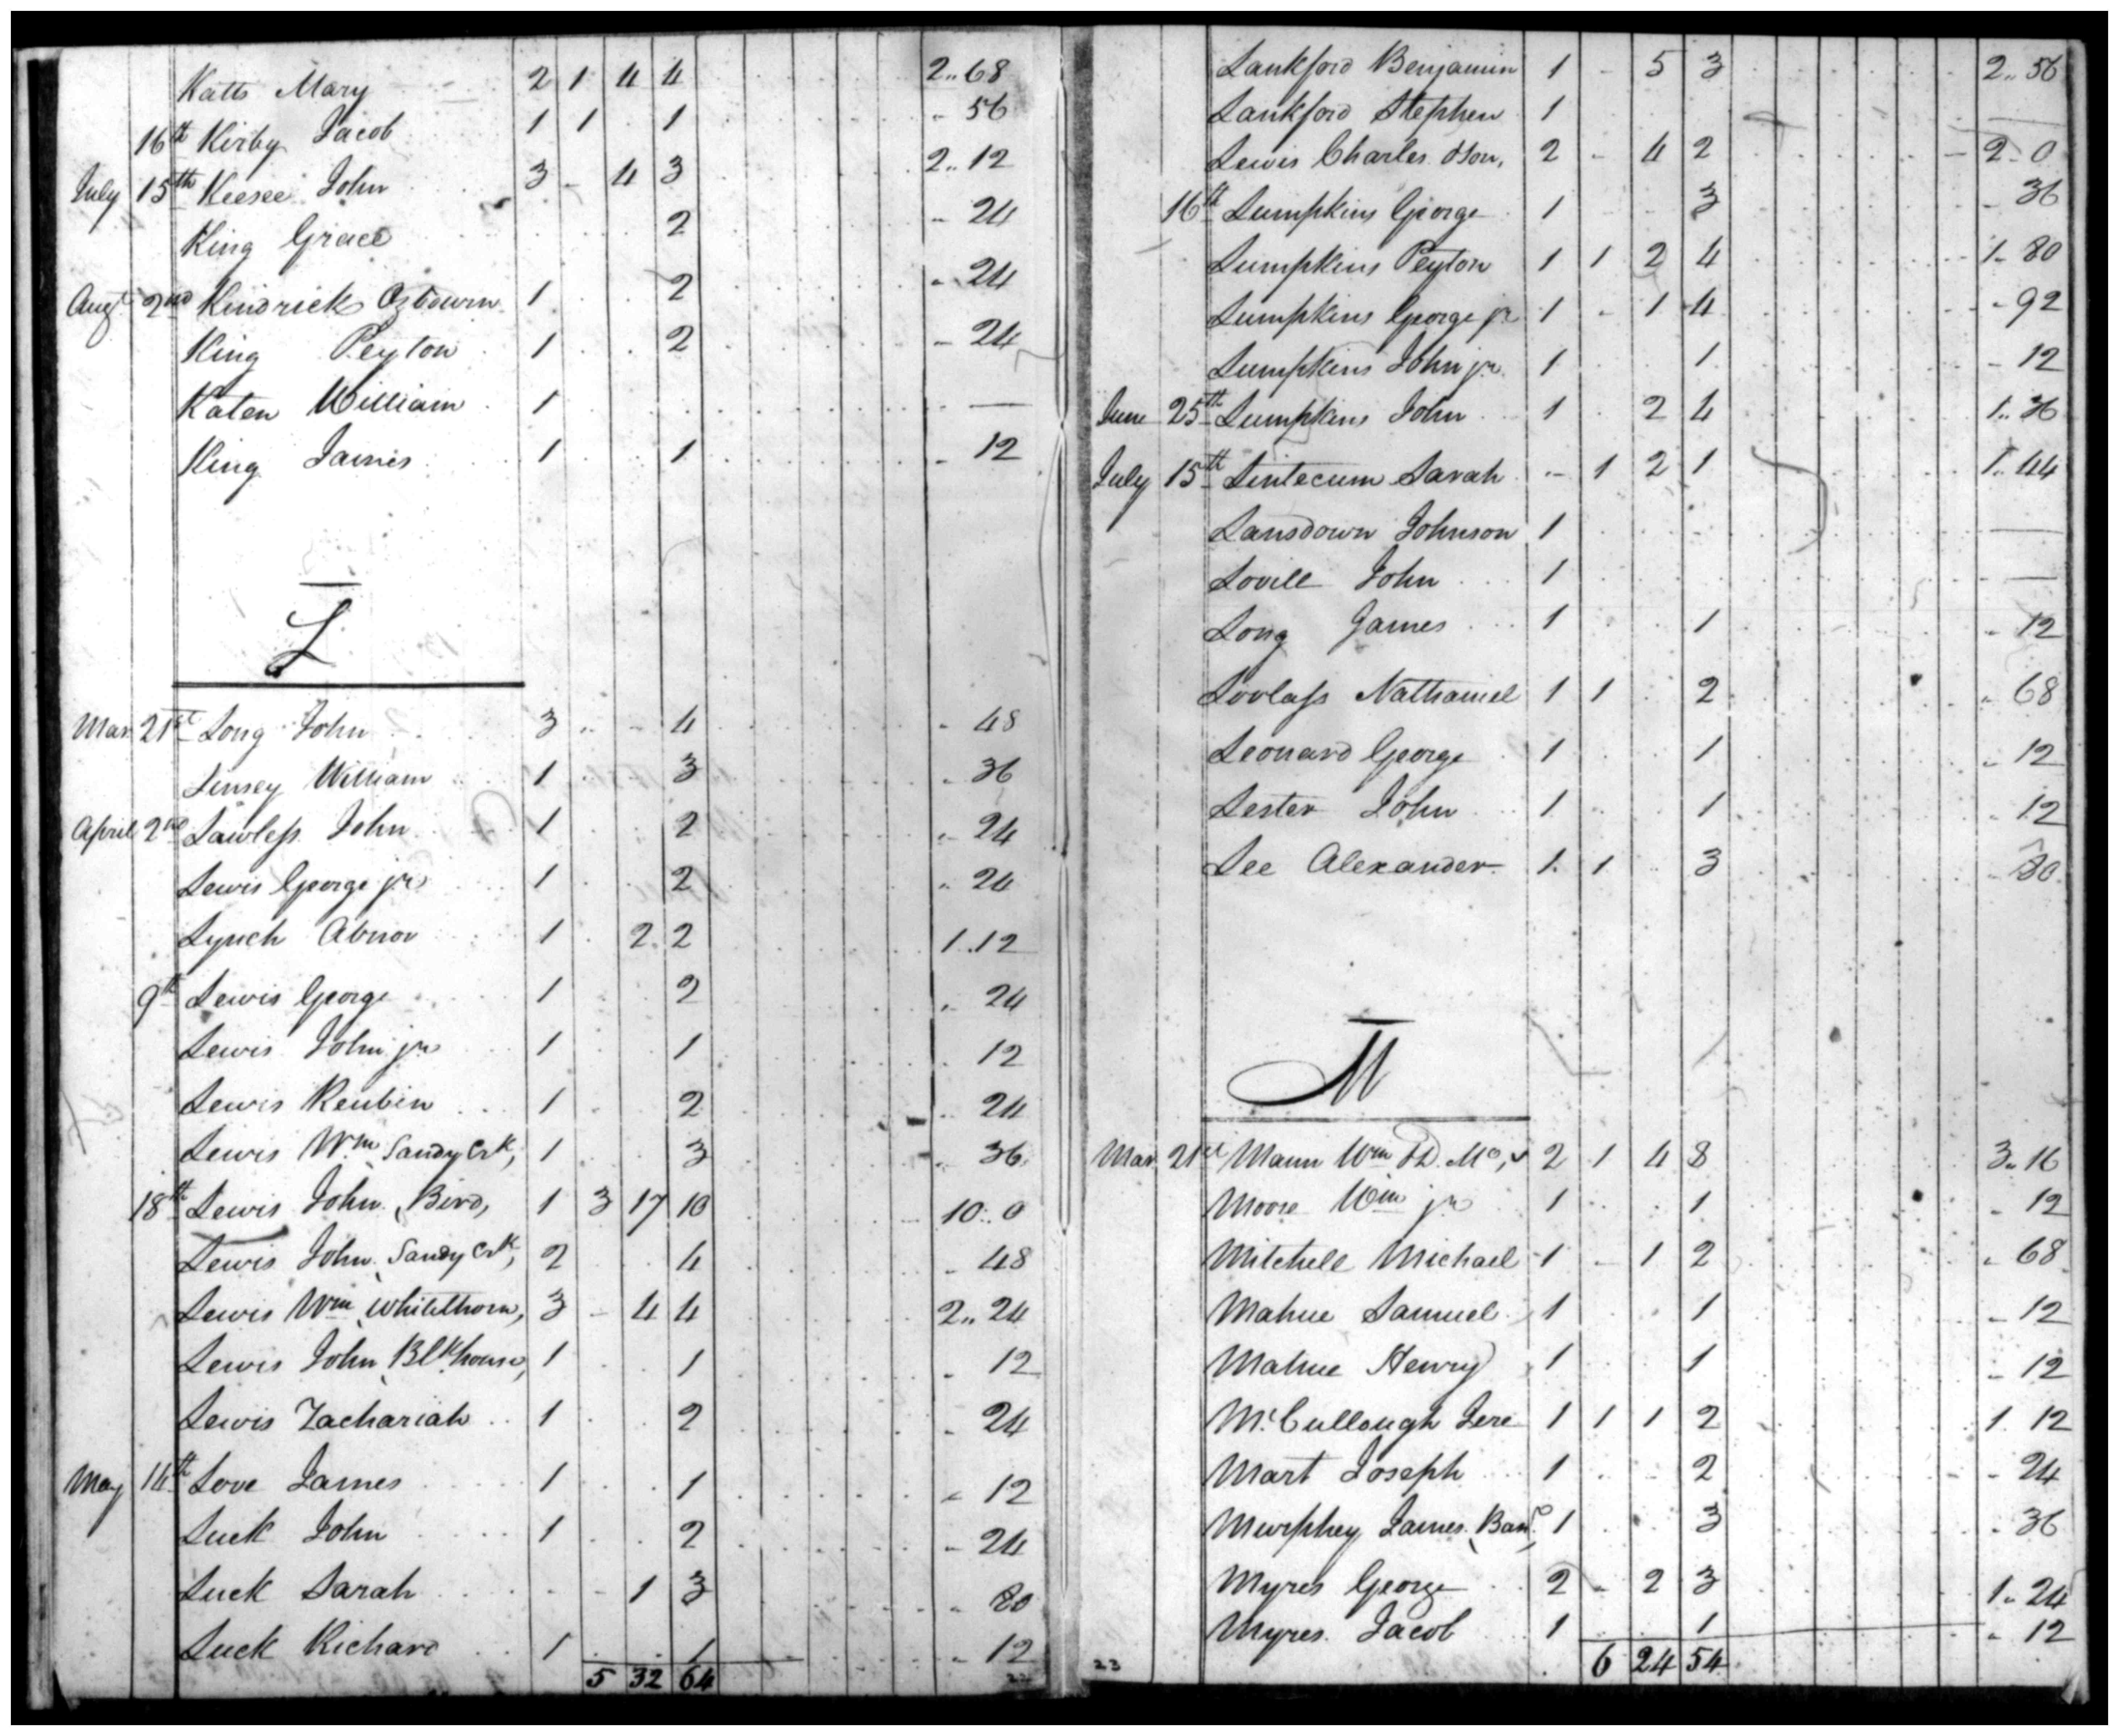 Katts Mary 2 1 4 4 2.. 68
16th Kirby Jacob 1 1 1 - 56
July 15th Keesee John 3 - 4 3 2.. 12
King Grace 2 - 24
Augt 2nd Kindrick Osbourn 1 2 - 24
King Peyton 1 2 - 24
Katen William 1 —
King James 1 1 - 12
L
Mar 21st Long John 3 4 - 48
Linsey William 1 3 - 36
April 2nd Lawless John 1 2 - 24
Lewis George jr 1 2 - 24
Lynch Abner 1 2 2 1.. 12
9th Lewis George 1 2 - 24
Lewis John jr 1 1 12
Lewis Reubin 1 2 - 24
Lewis Wm Sandy Crk, 1 3 - 36
18th Lewis John (Bird, 1 3 17 10 10.. 0
Lewis John Sandy Crk, 2 4 - 48
Lewis Wm Whitethorn, 3 - 4 4 2.. 24
Lewis John (Blkhouse, 1 1 - 12
Lewis Zachariah 1 2 - 24
May 14th Love James 1 1 - 12
Luck John 1 2 - 24
Luck Sarah - - 1 3 - 80
Luck Richard 1 1 - 12
5 32 64
Lankford Benjamin 1 - 5 3 2.. 56
Lankford Stephen 1 —
Lewis Charles Hson, 2 - 4 2 2 - 0
16th Lumpkins George 1 3 - 36
Lumpkins Peyton 1 1 2 4 1 - 80
Lumpkins George jr 1 - 1 4 - 92
Lumpkins John jr 1 1 - 12
June 25th Lumpkins John 1 2 4 1.. 36
July 15th Lintecum Sarah - 1 2 1 1.. 44
Lansdown Johnson 1 —
Lovell John 1 —
Long James 1 1 - 12
Lovlass Nathaniel 1 1 2 - 68
Leonard George 1 1 - 12
Lester John 1 1 - 12
Lee Alexander 1 1 3 - 80
M
Mar 21st Mann Wm 2 1 4 8 3.. 16
Moore Wm jr 1 1 - 12
Mitchell Michael 1 - 1 2 - 68
Mahue Samuel 1 1 - 12
Mahue Henry 1 1 - 12
McCullough Jere 1 1 1 2 1. 12
Mart Joseph 1 2 - 24
Murphey James (Ban 1 3 - 36
Myres George 2 - 2 3 1.. 24
Myres Jacob 1 1 - 12
23 6 24 54